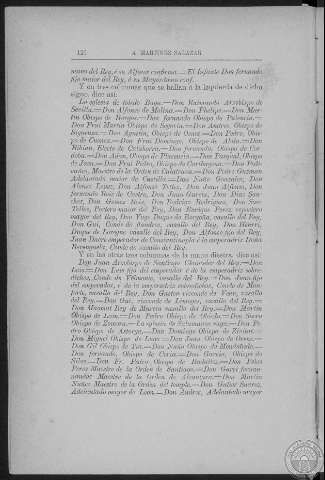 A. MARTÍNEZ SALAZAR
nores del Rey, é su Alfonso confirma.—El Infante Don fernando
fijo maior del Rey, é su Mayordomo conf.
Y en tres columnas que se hallan á la izquierda de dicho
signo, dice así:
La eglesia de toledo Vaga.—Don Raimundo Arzobispo de
Sevilla.—Don Alfonso de Molina.—Don Phelipe.—Don Mar-
tin Obispo de Burgos.—Don fernando Obispo de Palencia.—
Don Frai Martin Obispo de Segovia.—Don Andres, Obispo de
Siguenza.—Don Agustin, Obispo de Osma.—Don Pedro, Obis-
po de Cuenca.—Don Frai Domingo, Obispo de Abila.—Don
Vibian, Electo de Calahorra.—Don fernando, Obispo de Cor-
doba.—Don Adan, Obispo de Plasencia.—Don Pasqual, Obispo
de Jaen.—Don Frai Pedro, Obispo de Carthagena.—Don Pedro
Maestre de la Orden de Calatrava.—Don Pedro Guzman
Adelantado maior de Castilla.—Don Nuño Gonzalez, Don
Alonso Lopez, Don Alfonso Tellez, Don Juan Alfonso, Don
fernando Roiz de Castro, Don Juan Garcia, Don Diag San-
chez, Don Gomez Roiz, Don Rodrigo Rodriguez, Don Suer
Tellez, Portero maior del Rey, Don Enrique Perez repostero
mayor del Rey, Don Yugo Duque de Borgoña, vasallo del Rey,
Don Gui, Conde de flandes, vasallo del Rey, Don Henrri,
Duque de Loregne vasallo del Rey, Don Alfonso fijo del Rey
Juan Dacre emperador de Constantinopla é la emperadriz Doña
Berenguela, Conde do vasallo del Rey.
Y en las otras tres columnas de la mano diestra, dice así:
Don Juan Arzobispo de Santiago Chanceler del Rey.—Don
Lois.—Don Lois fijo del emperador é de la emperadriz sobre-
dichos, Conde de Velmonte, vasallo del Rey.—Don Juan fijo
del emperador, é de la emperadriz sobredichos, Conde de Mon-
fort, vasallo del Rey, Don Gaston vizconde de Bearn, vasallo
del Rey.—Don Gui, vizconde de Limoges, vasallo del Rey.—
Don Martin Obispo de Leon.—Don Pedro Obispo de Oviedo.—Don Suero
Obispo de Zamora.—La eglesia de Salamanca vaga.—Don Pe-
dro Obispo de Astorga.—Don Domingo Obispo de
Don Miguel Obispo de Lugo.—Don Juan Obispo de Orens.—
Don Gil Obispo de Tui.—Don Nuño Obispo de Mondoñedo.—
Don fernando, Obispo de Coria.—Don Garcia, Obispo de
Silve.—Don Fr. Pedro Obispo de Badalloz.—Don Pelay
Perez Maestre de la Orden de Santiago.—Don Garci fernan-
andez Maestre de la Orden de Alcantara.—Don Martin
Nuñez Maestre de la Orden del temple.—Don Gutier Suarez,
Adelantado mayor de Leon.—Don Andreu, Adelantado mayor